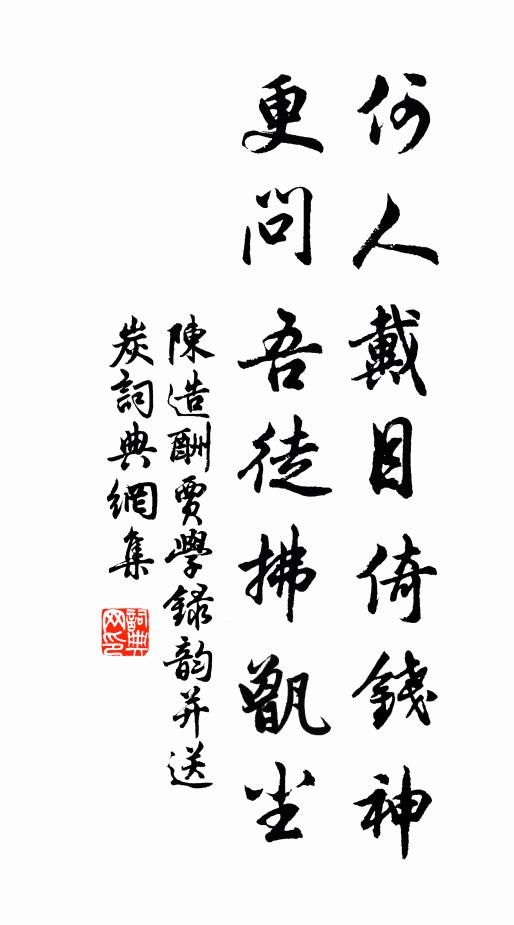 何人戴目倚錢神
更問吾徒拂甑尘
陳造酬賈學録韵并送
炭詞典網集
詞典
网印